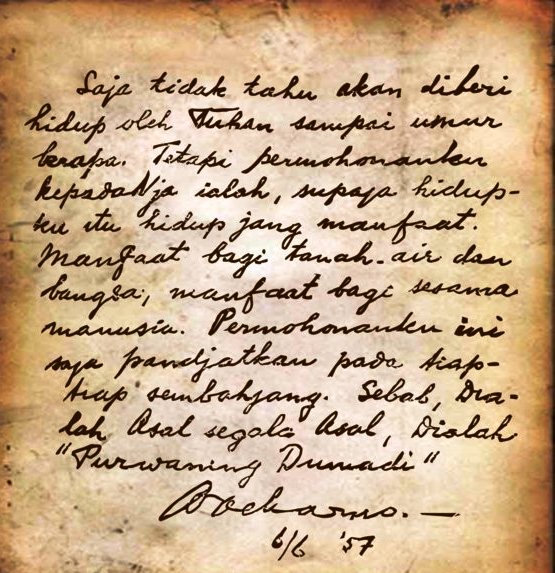 Saja tidak tahu akan diberi
hidup oleh Tuhan sampai umur
berapa. Tetapi permohonanku
kepadaNja ialah, supaja hidup-
ku itu hidup jang manfaat.
Manfaat bagi tanah-air dan
bangsa; manfaat bagi sesama
manusia. Permohonanku ini
saja pandjatkan pada tiap-
tiap sembahjang. Sebab, Dia-
lah Asal segala Asal, Dialah
"Purwaning Dumadi"
Soekarno. —
6/6 '57